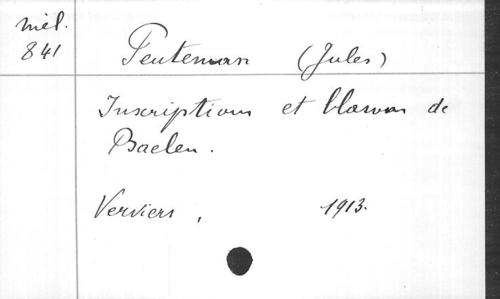 mél.
841
Feuteman (Jules)
Inscriptions et blasons de
Baelen.
Verviers, 1913.